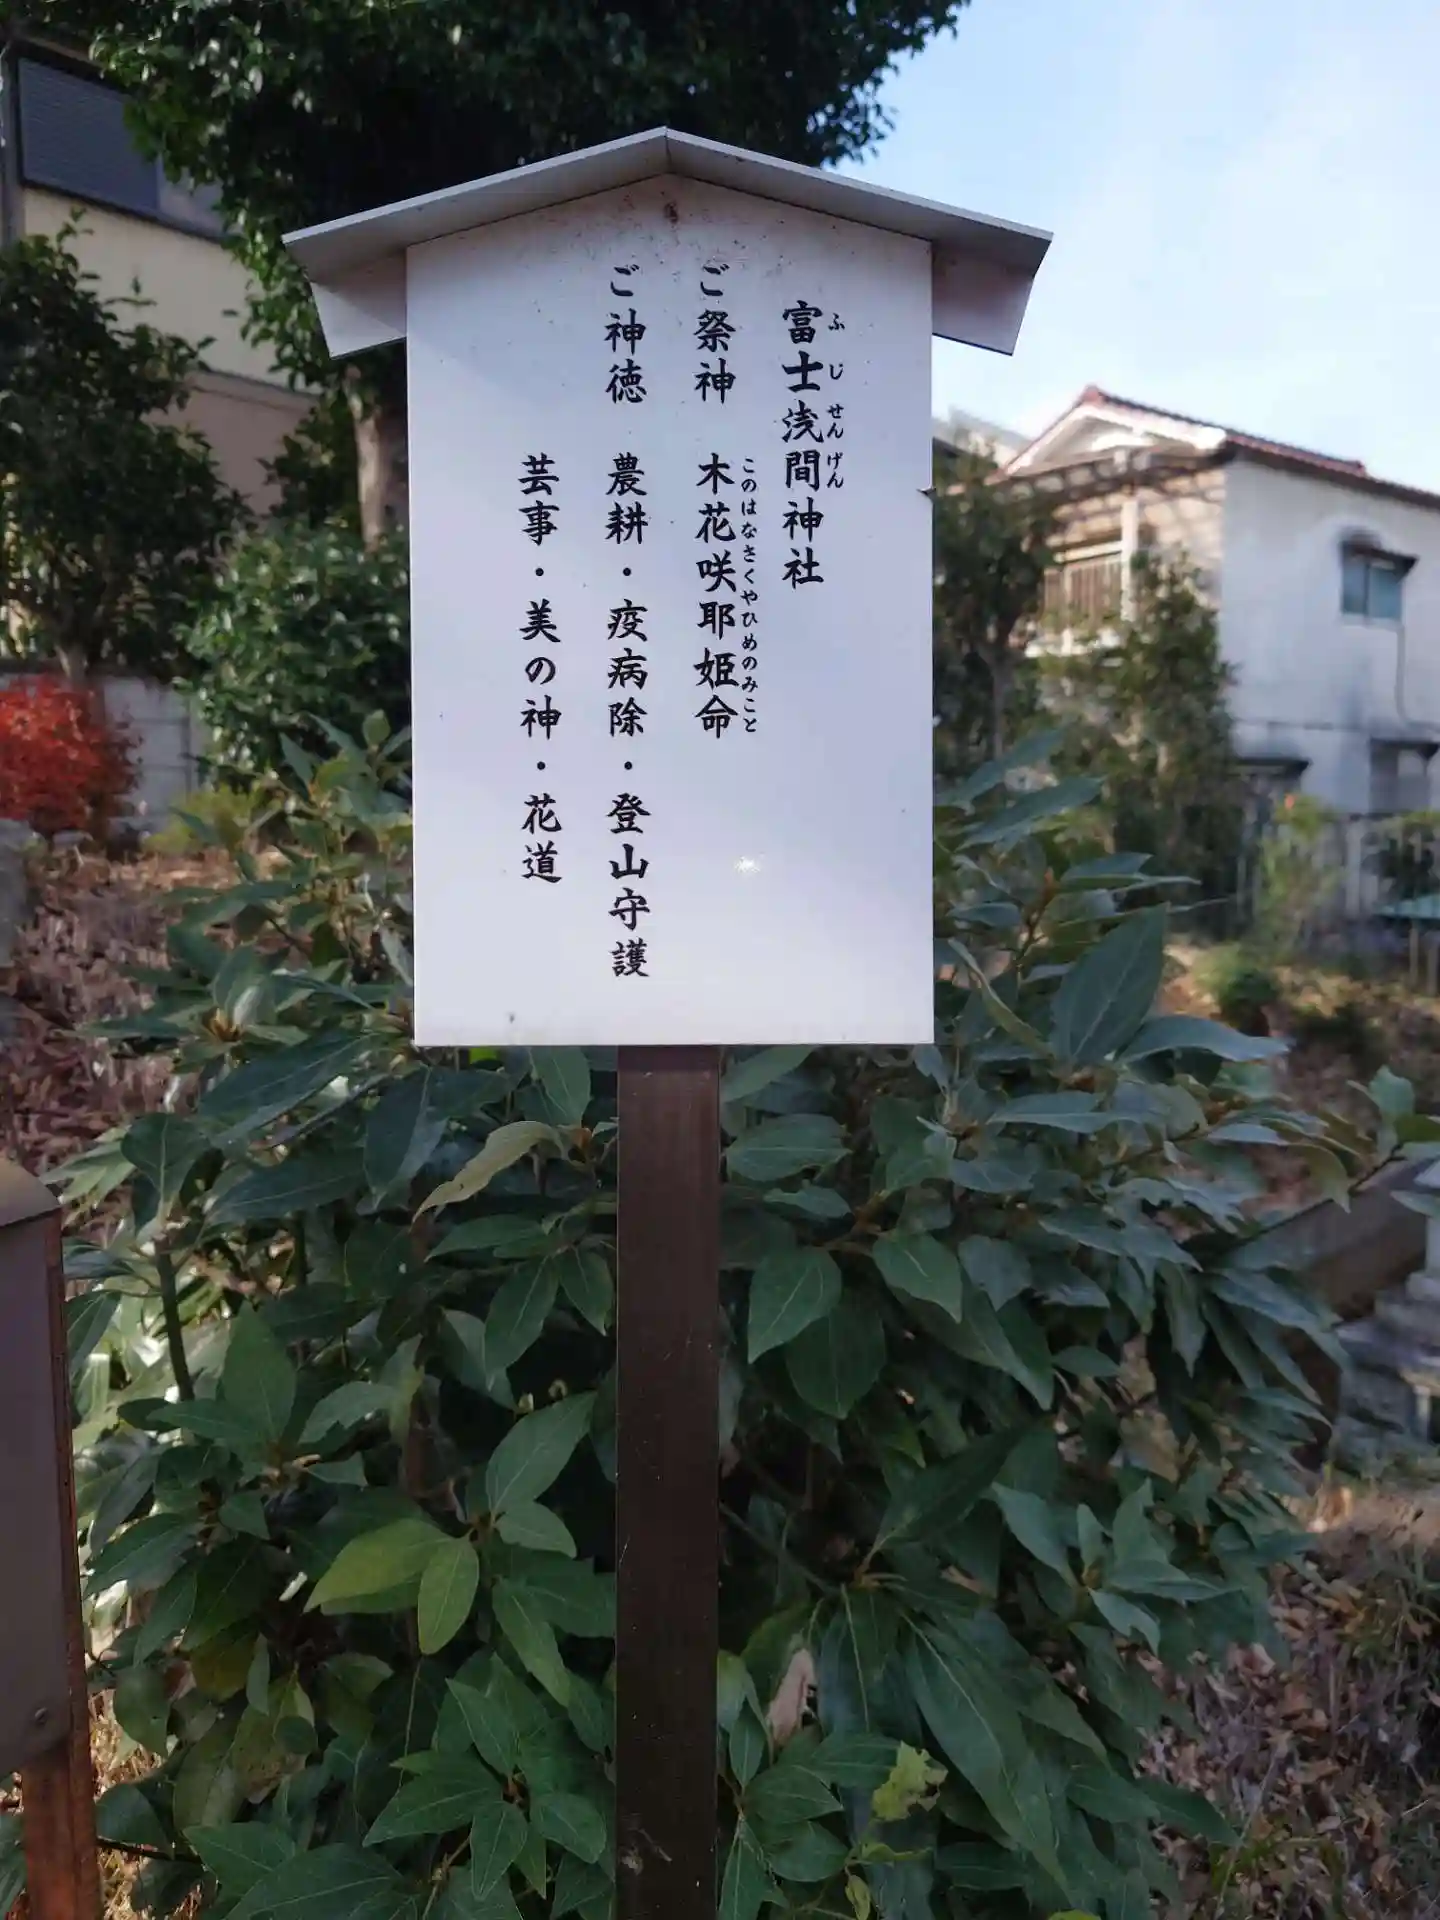 富士浅間神社
ふじせんげん
ご祭神　木花咲耶姫命
このはなさくやひめのみこと
ご神徳　農耕・疫病除・登山守護
芸事・美の神・花道